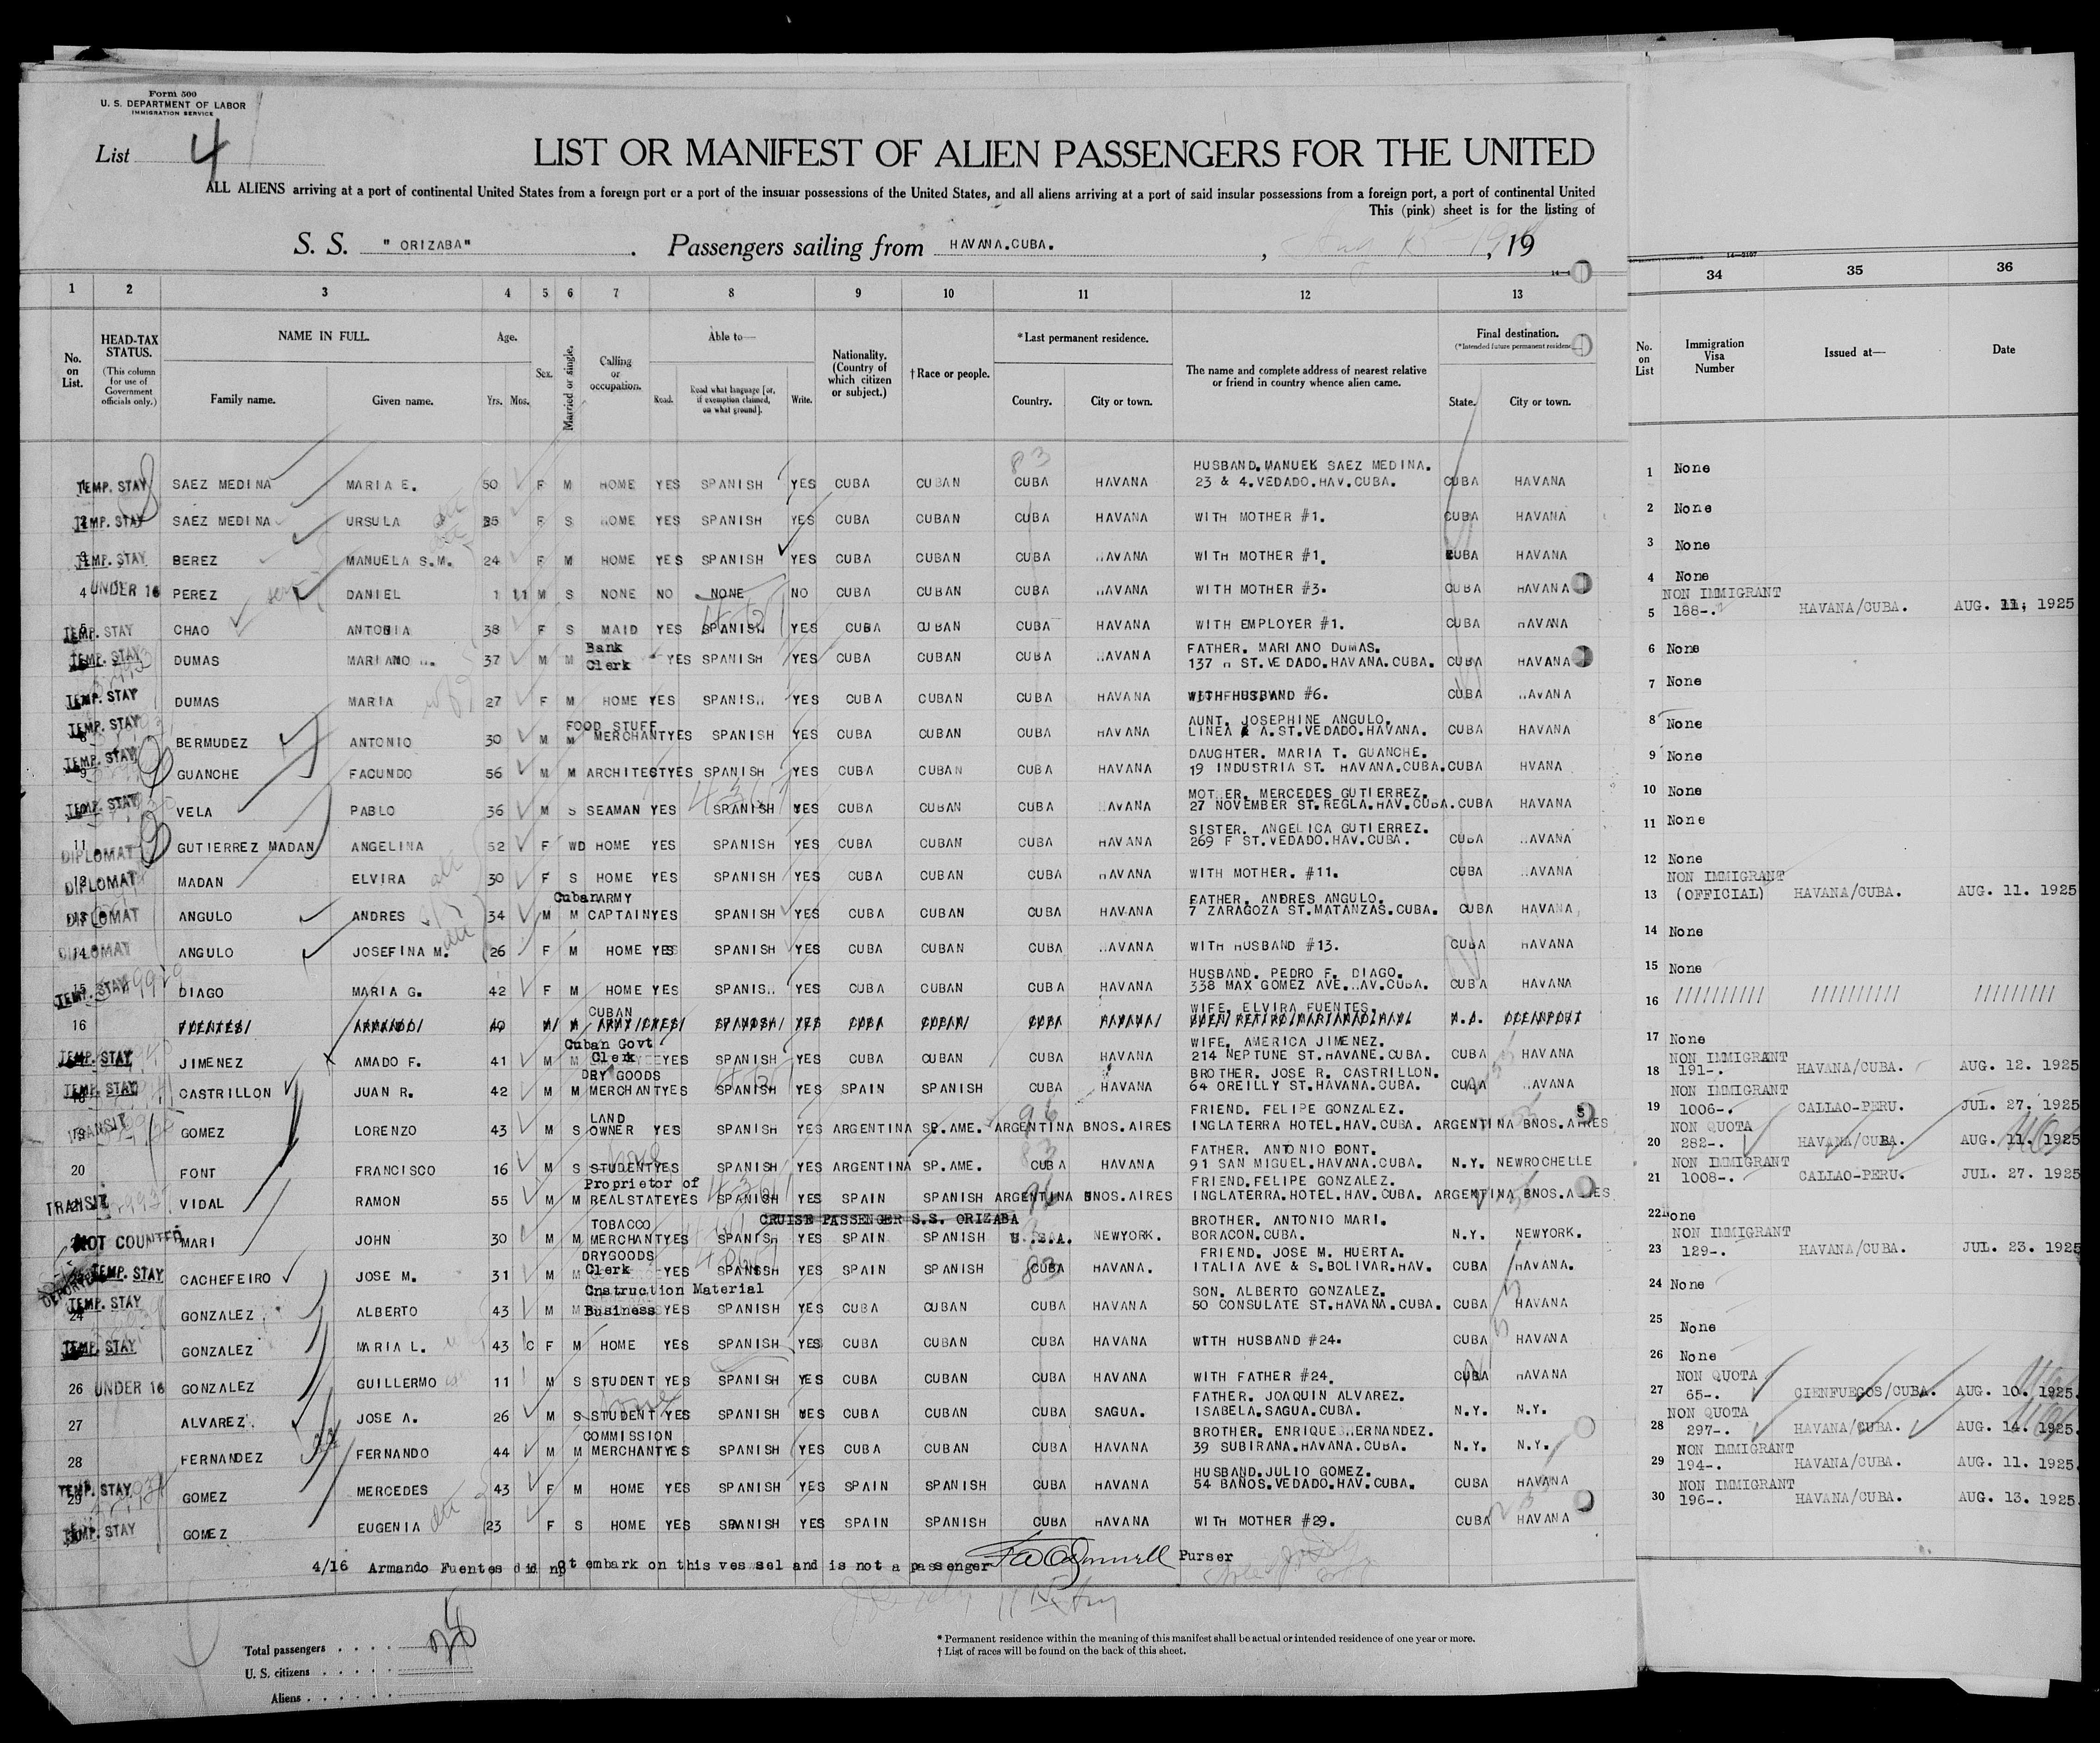 Form 500
U. S. DEPARTMENT OF LABOR
IMMIGRATION SERVICE
List 4
LIST OR MANIFEST OF ALIEN PASSENGERS FOR THE UNITED
ALL ALIENS arriving at a port of continental United States from a foreign port or a port of the insular possessions of the United States, and all aliens arriving at a port of said insular possessions from a foreign port, a port of continental United
This (pink) sheet is for the listing of
S. S. "ORIZABA". Passengers sailing from HAVANA.CUBA. , 19
1 2 3 4 5 6 7 8 9 10 11 12 13 34 35 36
No. on List. HEAD-TAX STATUS. (This column for use of Government officials only.) NAME IN FULL. Family name. Given name. Age. Yrs. Mos. Sex. Married or single. Calling or occupation. Able to— Read. Read what language [or, if exemption claimed, on what ground]. Write. Nationality. (Country of which citizen or subject.) †Race or people. *Last permanent residence. Country. City or town. The name and complete address of nearest relative or friend in country whence alien came. Final destination. (*Intended future permanent residence) State. City or town. No. on List Immigration Visa Number Issued at— Date
83 HUSBAND.MANUEK SAEZ MEDINA.
TEMP. STAY SAEZ MEDINA MARIA E. 50 F M HOME YES SPANISH YES CUBA CUBAN CUBA HAVANA 23 & 4.VEDADO.HAV.CUBA. CUBA HAVANA 1 None
TEMP. STAY SAEZ MEDINA URSULA F S HOME YES SPANISH YES CUBA CUBAN CUBA HAVANA WITH MOTHER #1. CUBA HAVANA 2 None
TEMP. STAY BEREZ MANUELA S.M. 24 F M HOME YES SPANISH YES CUBA CUBAN CUBA HAVANA WITH MOTHER #1. CUBA HAVANA 3 None
4 UNDER 16 PEREZ DANIEL 1 11 M S NONE NO NONE NO CUBA CUBAN CUBA HAVANA WITH MOTHER #3. CUBA HAVANA 4 None
NON IMMIGRANT
5 TEMP. STAY CHAO ANTONIA 38 F S MAID YES SPANISH YES CUBA CUBAN CUBA HAVANA WITH EMPLOYER #1. CUBA HAVANA 5 188-. HAVANA/CUBA. AUG. 11, 1925
Bank FATHER. MARIANO DUMAS.
TEMP. STAY DUMAS MARIANO 37 M M Clerk YES SPANISH YES CUBA CUBAN CUBA HAVANA 137 H ST.VEDADO.HAVANA.CUBA. CUBA HAVANA 6 None
TEMP. STAY DUMAS MARIA 27 F M HOME YES SPANISH YES CUBA CUBAN CUBA HAVANA WITH HUSBAND #6. CUBA HAVANA 7 None
FOOD STUFF AUNT. JOSEPHINE ANGULO.
TEMP. STAY 8 BERMUDEZ ANTONIO 30 M M MERCHANT YES SPANISH YES CUBA CUBAN CUBA HAVANA LINEA & A.ST.VEDADO.HAVANA. CUBA HAVANA 8 None
DAUGHTER. MARIA T. GUANCHE.
TEMP. STAY 9 GUANCHE FACUNDO 56 M M ARCHITECT YES SPANISH YES CUBA CUBAN CUBA HAVANA 19 INDUSTRIA ST. HAVANA.CUBA. CUBA HVANA 9 None
MOTHER. MERCEDES GUTIERREZ.
TEMP. STAY VELA PABLO 36 M S SEAMAN YES SPANISH YES CUBA CUBAN CUBA HAVANA 27 NOVEMBER ST.REGLA.HAV.CUBA. CUBA HAVANA 10 None
SISTER. ANGELICA GUTIERREZ.
11 DIPLOMAT GUTIERREZ MADAN ANGELINA 52 F WD HOME YES SPANISH YES CUBA CUBAN CUBA HAVANA 269 F ST.VEDADO.HAV.CUBA. CUBA HAVANA 11 None
12 DIPLOMAT MADAN ELVIRA 30 F S HOME YES SPANISH YES CUBA CUBAN CUBA HAVANA WITH MOTHER. #11. CUBA HAVANA 12 None
Cuban ARMY FATHER. ANDRES ANGULO. NON IMMIGRANT
13 DIPLOMAT ANGULO ANDRES 34 M M CAPTAIN YES SPANISH YES CUBA CUBAN CUBA HAVANA 7 ZARAGOZA ST.MATANZAS.CUBA. CUBA HAVANA 13 (OFFICIAL) HAVANA/CUBA. AUG. 11. 1925
14 DIPLOMAT ANGULO JOSEFINA M. 26 F M HOME YES SPANISH YES CUBA CUBAN CUBA HAVANA WITH HUSBAND #13. CUBA HAVANA 14 None
HUSBAND. PEDRO F. DIAGO.
15 TEMP. STAY DIAGO MARIA G. 42 F M HOME YES SPANISH YES CUBA CUBAN CUBA HAVANA 338 MAX GOMEZ AVE.HAV.CUBA. CUBA HAVANA 15 None
CUBAN WIFE. ELVIRA FUENTES.
16 FUENTES ARMANDO 40 M M ARMY YES SPANISH YES CUBA CUBAN CUBA HAVANA BUEN RETIRO MARIANAO.HAV. N.J. OCEANPORT 16 ////////// ////////// /////////
Cuban Govt WIFE. AMERICA JIMENEZ.
TEMP. STAY JIMENEZ AMADO F. 41 M M Clerk YES SPANISH YES CUBA CUBAN CUBA HAVANA 214 NEPTUNE ST.HAVANE.CUBA. CUBA HAVANA 17 None
DRY GOODS BROTHER. JOSE R. CASTRILLON. NON IMMIGRANT
TEMP. STAY CASTRILLON JUAN R. 42 M M MERCHANT YES SPANISH YES SPAIN SPANISH CUBA HAVANA 64 OREILLY ST.HAVANA.CUBA. CUBA HAVANA 18 191-. HAVANA/CUBA. AUG. 12. 1925
LAND 96 FRIEND. FELIPE GONZALEZ. NON IMMIGRANT
19 TRANSIT GOMEZ LORENZO 43 M S OWNER YES SPANISH YES ARGENTINA SP.AME. ARGENTINA BNOS.AIRES INGLATERRA HOTEL.HAV.CUBA. ARGENTINA BNOS.AIRES 19 1006-. CALLAO-PERU. JUL. 27. 1925
83 FATHER. ANTONIO DONT. NON QUOTA
20 FONT FRANCISCO 16 M S STUDENT YES SPANISH YES ARGENTINA SP.AME. CUBA HAVANA 91 SAN MIGUEL.HAVANA.CUBA. N.Y. NEWROCHELLE 20 282-. HAVANA/CUBA. AUG. 11. 1925
Proprietor of FRIEND.FELIPE GONZALEZ. NON IMMIGRANT
TRANSIT VIDAL RAMON 55 M M REALSTATE YES SPANISH YES SPAIN SPANISH ARGENTINA BNOS.AIRES INGLATERRA.HOTEL.HAV.CUBA. ARGENTINA BNOS.AIRES 21 1008-. CALLAO-PERU. JUL. 27. 1925
CRUISE PASSENGER S.S. ORIZABA
TOBACCO BROTHER. ANTONIO MARI.
NOT COUNTED MARI JOHN 30 M M MERCHANT YES SPANISH YES SPAIN SPANISH U.S.A. NEWYORK. BORACON.CUBA. N.Y. NEWYORK. 22 None
DRYGOODS FRIEND. JOSE M. HUERTA. NON IMMIGRANT
TEMP. STAY CACHEFEIRO JOSE M. 31 M M Clerk YES SPANISH YES SPAIN SPANISH CUBA HAVANA. ITALIA AVE & S.BOLIVAR.HAV. CUBA HAVANA. 23 129-. HAVANA/CUBA. JUL. 23. 1925
Cnstruction Material SON. ALBERTO GONZALEZ.
TEMP. STAY 24 GONZALEZ ALBERTO 43 M M Business YES SPANISH YES CUBA CUBAN CUBA HAVANA 50 CONSULATE ST.HAVANA.CUBA. CUBA HAVANA 24 None
TEMP. STAY GONZALEZ MARIA L. 43 F M HOME YES SPANISH YES CUBA CUBAN CUBA HAVANA WTTH HUSBAND #24. CUBA HAVANA 25 None
26 UNDER 16 GONZALEZ GUILLERMO 11 M S STUDENT YES SPANISH YES CUBA CUBAN CUBA HAVANA WITH FATHER #24. CUBA HAVANA 26 None
FATHER. JOAQUIN ALVAREZ. NON QUOTA
27 ALVAREZ JOSE A. 26 M S STUDENT YES SPANISH YES CUBA CUBAN CUBA SAGUA. ISABELA.SAGUA.CUBA. N.Y. N.Y. 27 65-. CIENFUEGOS/CUBA. AUG. 10. 1925.
COMMISSION BROTHER. ENRIQUE HERNANDEZ. NON QUOTA
28 FERNANDEZ FERNANDO 44 M M MERCHANT YES SPANISH YES CUBA CUBAN CUBA HAVANA 39 SUBIRANA.HAVANA.CUBA. N.Y. N.Y. 28 297-. HAVANA/CUBA. AUG. 14. 1925.
HUSBAND.JULIO GOMEZ. NON IMMIGRANT
TEMP. STAY 29 GOMEZ MERCEDES 43 F M HOME YES SPANISH YES SPAIN SPANISH CUBA HAVANA 54 BAÑOS.VEDADO.HAV.CUBA. CUBA HAVANA 29 194-. HAVANA/CUBA. AUG. 11. 1925.
NON IMMIGRANT
TEMP. STAY GOMEZ EUGENIA 23 F S HOME YES SPANISH YES SPAIN SPANISH CUBA HAVANA WITH MOTHER #29. CUBA HAVANA 30 196-. HAVANA/CUBA. AUG. 13. 1925.
4/16 Armando Fuentes did not embark on this vessel and is not a passenger Purser
Total passengers . . . .
U. S. citizens . . . . .
Aliens . . . . . .
* Permanent residence within the meaning of this manifest shall be actual or intended residence of one year or more.
† List of races will be found on the back of this sheet.